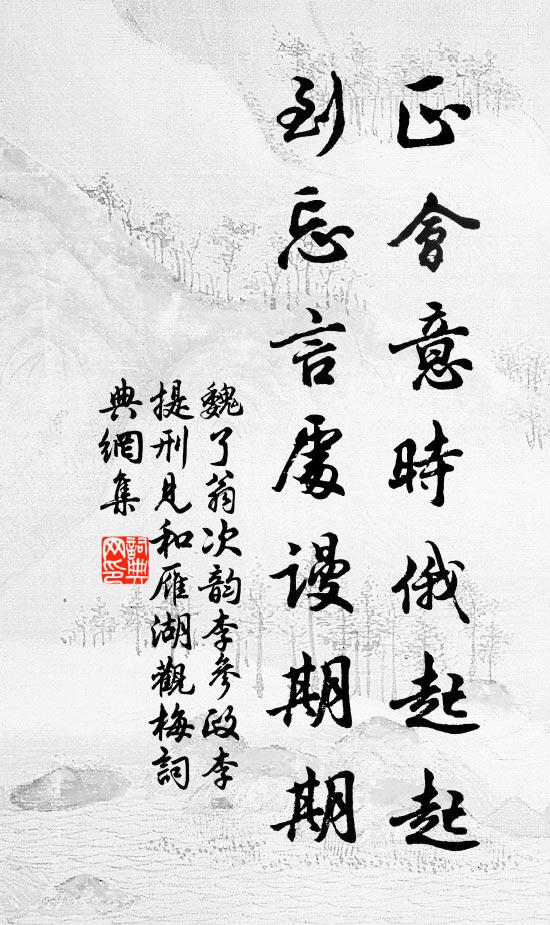 正會意時俄起起
到忘言處謾期期
魏了翁次韵李參政李
提刑見和雁湖觀梅詞
典網集
詞典网印